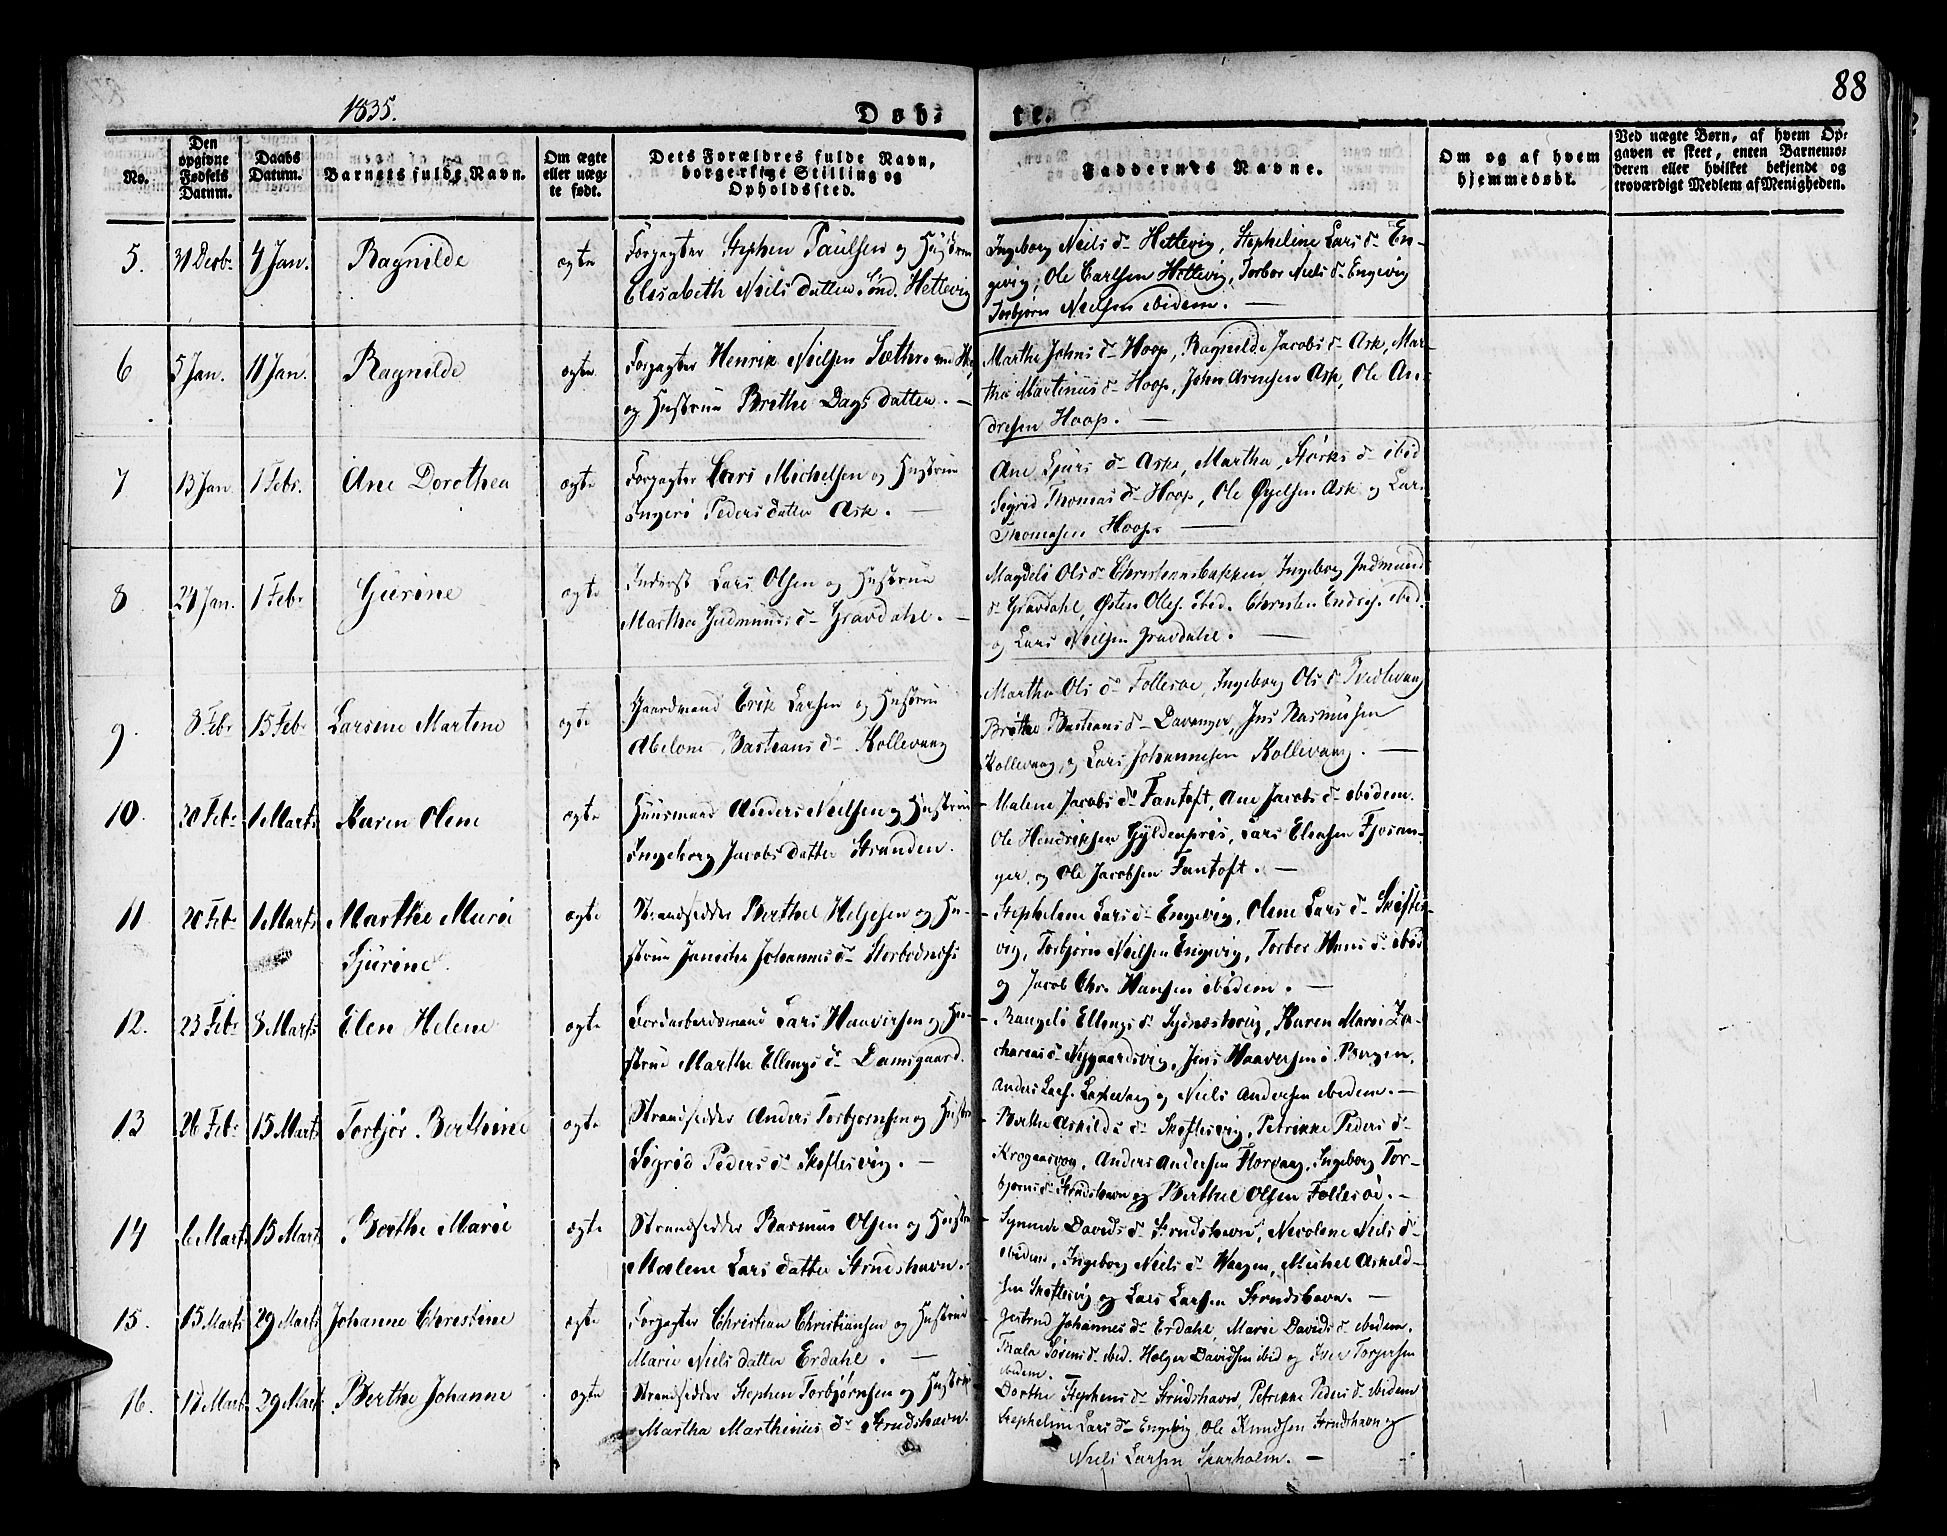 88
1835.
Døb-
te.
No.
Den opgivne Fødsels Datum.
Daabs Datum.
Barnets fulde Navn.
Om ægte eller uægte født.
Dets Forældres fulde Navn, borgerlige Stilling og Opholdssted.
Faddernes Navne.
Om og af hvem hjemmedøbt.
Ved uægte Børn, af hvem Op-
gaven er skeet, enten Barnemo-
deren eller hvilket bekjendt og
troværdigt Medlem af Menigheden.
5. 31 Decbr. 4 Jan. Ragnilde ægte
Forpagter Stephen Paulsen og Hustrue
Elisabeth Niels datter Hettevig
Ingeborg Niels d. Hettevig, Stepheline Lars d. En-
gevig, Ole Carlsen Hettevig, Torbor Niels d. Engevig
Torbjørn Nielsen ibidem. —
6 5 Jan. 11 Jan. Ragnilde ægte
Forpagter Henrik Nielsen
og Hustrue Brethe Dags datter. —
Marthe Johns d. Hoop, Ragnilde Jacobs d. Ask, Mar-
tha Martinus d. Hoop, John Arnesen Ask, Ole An-
dresen Hoop. —
7 13 Jan 1 Febr. Ane Dorothea ægte
Forpagter Lars Michelsen og Hustrue
Peders datter Ask. —
Ane d. Ask, Martha d. ibid
Sigrid Thomas d. Hoop, Ole Ask og Lars
Thomesen Hoop. —
8 24 Jan. 1 Febr. Gurine ægte
Inderst Lars Olsen og Hustrue
Martha Gudmunds d. Gravdahl. —
Magdeli Ols d. Christiansbakken, Ingeborg Gudmund
d. Gravdahl, Østen Olles. ibid. Christen Endres. ibid.
og Lars Nielsen Gravdahl. —
9. 8 Febr 15 Febr Larsine Martine ægte
Gaardmand Erik Larsen og Hustrue
Abelone Bastians d. Kollevaag
Martha Ols d. Follesøe, Ingeborg Ols d.
Brithe Bastians d. Davanger, Jens Rasmussen
Kollevaag, og Lars Johannesen Kollevaag. —
10. 20 Febr 1 Marts Karen Oline ægte
Huusmand Anders Nielsen og Hustrue
Ingeborg Jacobs datter Stranden.
Malene Jacobs d. Fantoft, Ane Jacobs d. ibidem.
Ole Hendriksen Gyldenpris, Lars Fjøsan-
ger, og Ole Jacobsen Fantoft. —
11. 20 Febr 1 Marts Marthe Marie
Sjurine. ægte
Strandsidder Berthel Helgesen og Hu-
strue Johannes d.
Stepheline Lars d. Engevig, Oline Lars d. Skiftes-
vig, Torbjørn Nielsen Engevig, Torbor Hans d. ibid
og Jacob Chr. Hansen ibidem. —
12. 23 Febr 8 Marts Elen Helene ægte
Lars Haaversen og Hu-
strue Marthe Ellings d. Damsgaard.
Rangeli Ellings d. Karen Marie Za-
charias d. Nygaardsvig, Jens Haaversen i Bergen,
Anders Lars. Laxevaag og Niels Andersen ibidem. —
13 26 Febr 15 Marts Torbjør Berthine ægte
Strandsidder Anders Torbjørnsen og Hustrue
Sigrid Peders d. Skiftesvig. —
Berthe Askilds d. Skiftesvig, Petrikke Peders d.
Anders Andersen Florvaag, Ingeborg Tor-
bjørns d. Strudshavn og Berthel Olsen Follesøe. —
14 6 Marts 15 Marts Berthe Marie ægte
Strandsidder Rasmus Olsen og Hustrue
Malene Lars datter Strudshavn. —
Synneve Davids d. Strudshavn, Nicoline Niels d.
ibidem, Ingeborg Niels d. Michel Askeld-
sen Skiftesvig og Lars Larsen Strudshavn. —
15. 15 Marts 29 Marts Johanne Christine ægte
Forpagter Christian Christiansen og Hustrue
Marie Niels datter Erdahl. —
Gertrud Johannes d. Erdahl, Marie Davids d. ibidem.
Thala Sørens d. ibid. Holger Davidsen ibid og Iver Torgersen
ibidem. —
16. 17 Marts 29 Marts Berthe Johanne ægte
Strandsidder Stephen Torbjørnsen og Hustrue
Martha Marthinus d. Strudshavn.
Dorthe Stephens d. Strudshavn, Petrikke Peders d. ibidem
Stepheline Lars d. Engevig, Ole Knudsen Strudshavn og
Niels Larsen —